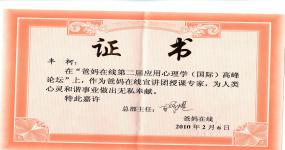 证 书
丰 柯:
在“爸妈在线第二届应用心理学(国际)高峰
论坛”上,作为爸妈在线宣讲团授课专家,为人类
心灵和谐事业做出无私奉献。
特此嘉许
总部主任:
爸妈在线
2010 年 2 月 6 日